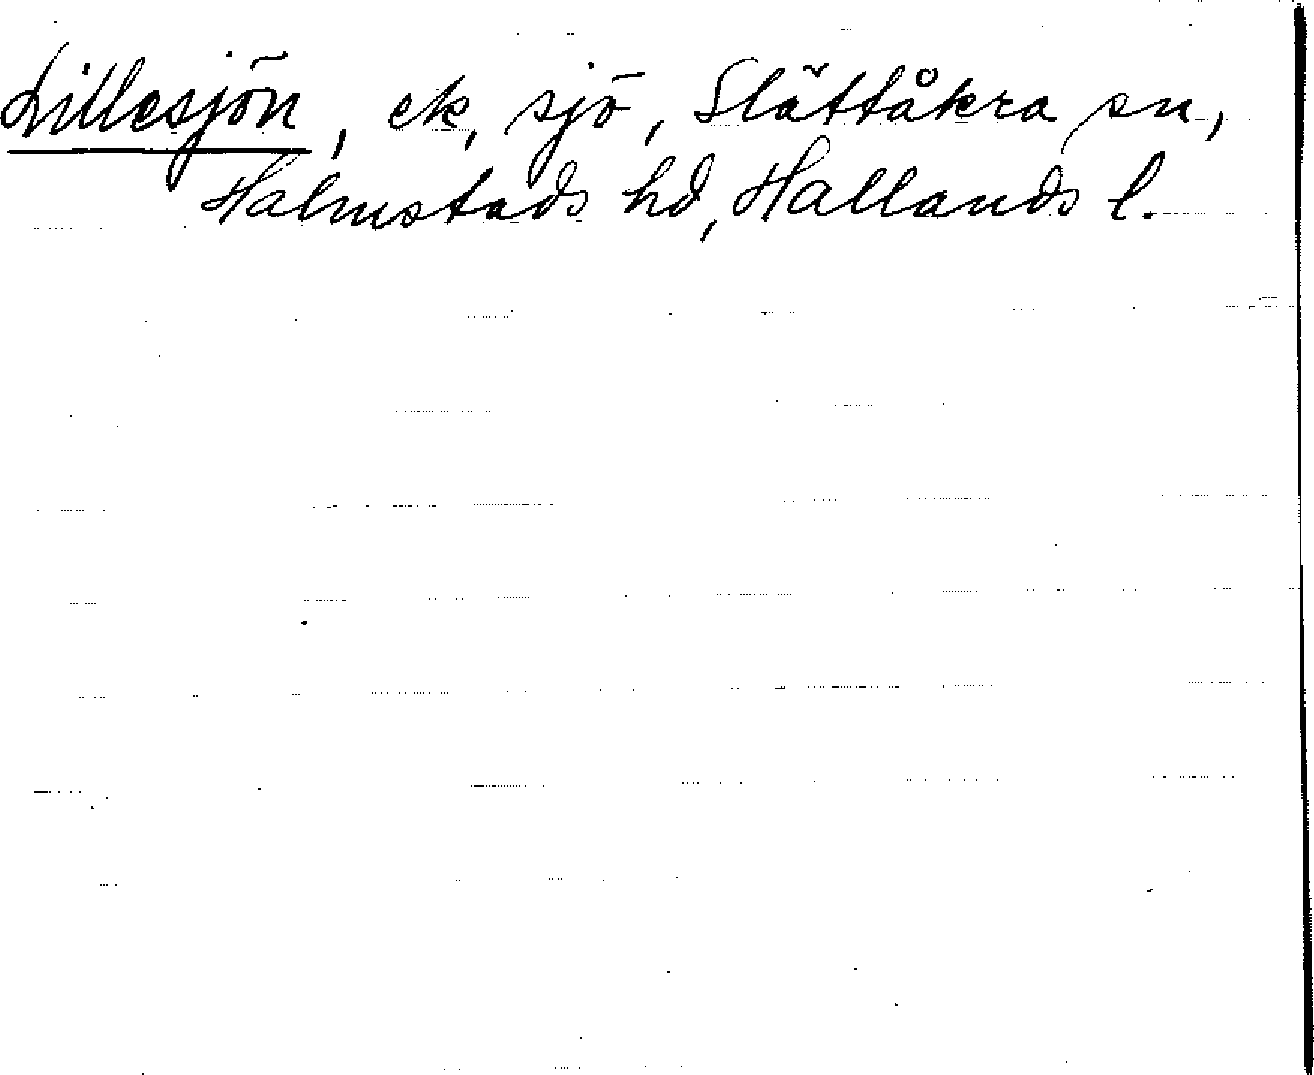 Lillesjön, ek, sjö, Slättåkra sn,
Halmstads hd, Hallands l.